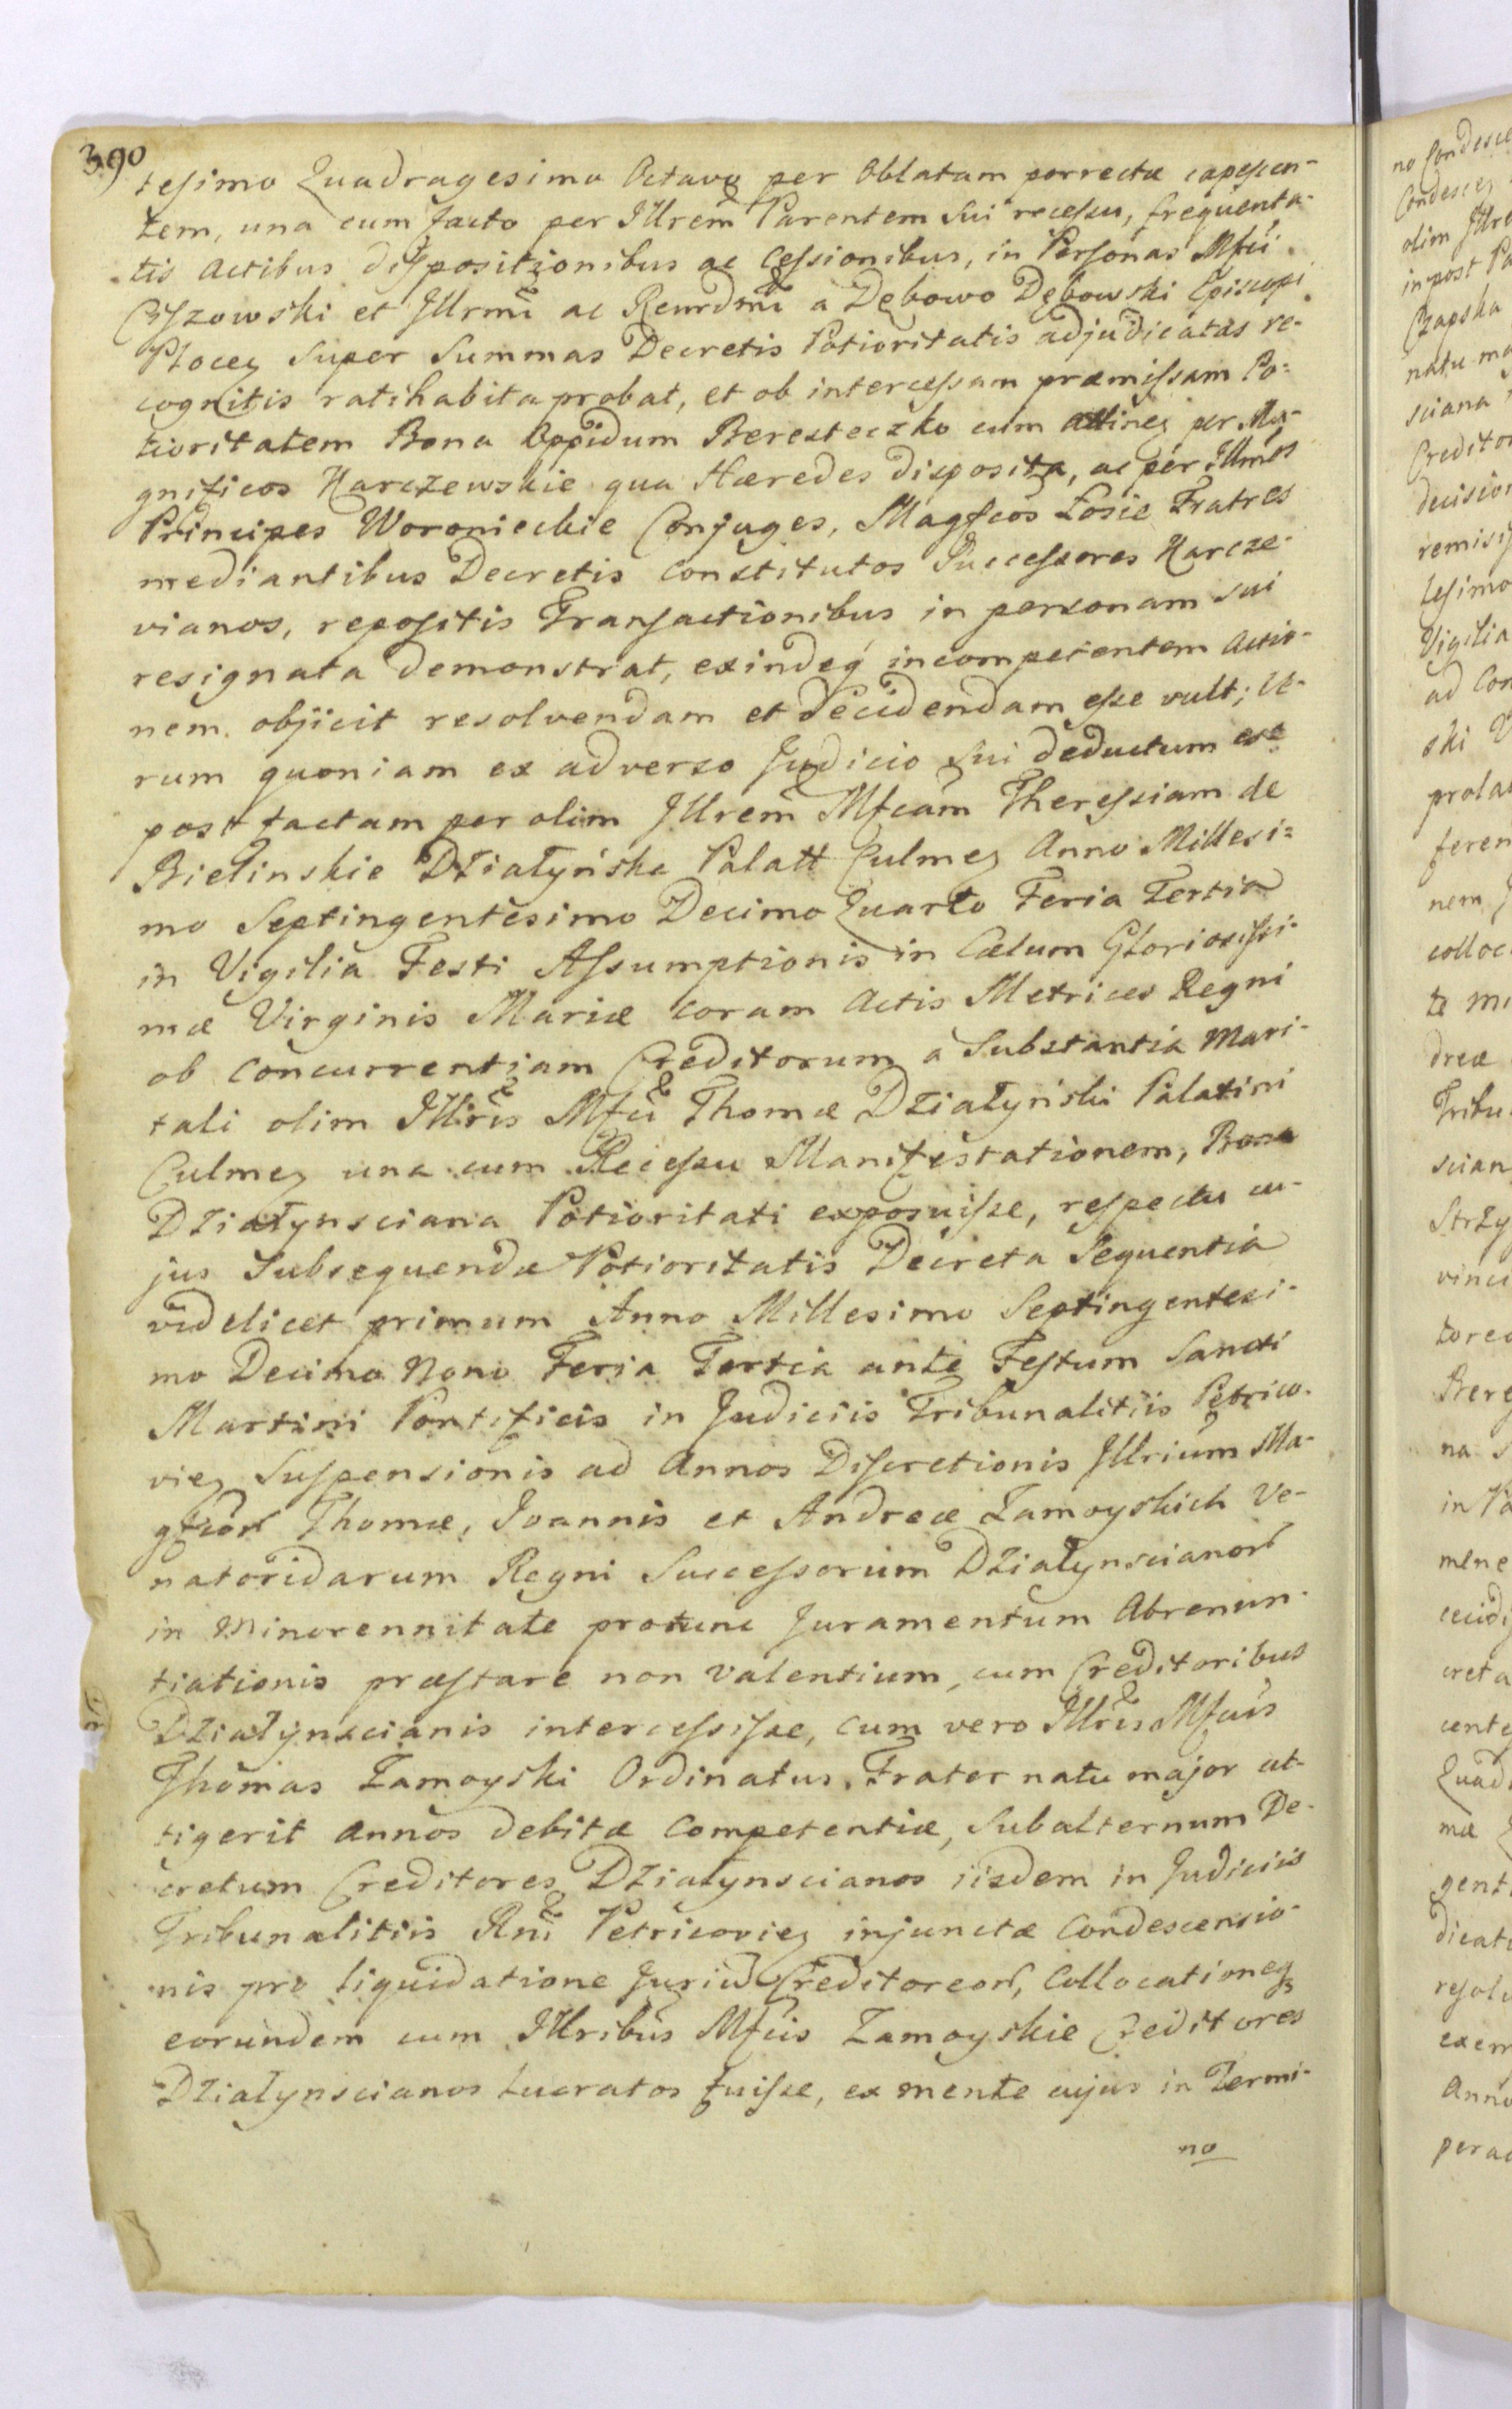 390
tesimo Quadragesimo Octavo per Oblatam porrectæ capescen-
tem, una cum facto per Illrem Parentem sui recessu, frequenta-
tis Actibus dispositionibus ac Cessionibus, in Personas Mfci
Cyszowski et Illrmi ac Reurdmi a Dębowo Dębowski Episcopi
Plocen Super Summas Decretis Potioritatis adjudicatas re-
cognitis ratihabita probat, et ob intercessam præmissam Po-
tioritatem Bona Oppidum Beresteczko cum attinen per Ma-
gnificos Harczewskie qua Hæredes disposita, ac per Illmos
Principes Woronieckie Conjuges, Magfcos Łosie Fratres
mediantibus Decretis constitutos Successores Harcze-
vianos, repositis Transactionibus in personam sui
resignata demonstrat, exindeq incompetentem Actio-
nem objicit resolvendam et decidendam esse vult; Ve-
rum quoniam ex adverso Judicio sui deductum est
post factam per olim Illrem Mfcam Theressiam de
Bielinskie Działyńska Palatt Culmen Anno Millesi-
mo Septingentesimo Decimo Quarto Feria Tertia
in Vigilia Festi Assumptionis in Cælum Gloriosissi-
mæ Virginis Mariæ coram Actis Metrices Regni
ob Concurrentiam Creditorum a Substantia Mari-
tali olim Illris Mfci Thomæ Działyński Palatini
Culmen una cum Recessu Manifestationem, Bona
Działynsciana Potioritati exposuisse, respectu cu-
jus Subsequendæ Potioritatis Decreta Sequentia
videlicet primum Anno Millesimo Septingentesi-
mo Decimo Nono Feria Tertia ante Festum Sancti
Martini Pontificis in Judiciis Tribunalitiis Petrico-
vien Suspensionis ad Annos Discretionis Illrium Ma-
gfcor Thomæ, Joannis et Andreæ Zamoyskich Ve-
natoridarum Regni Successorum Działynscianor
in Minorennitate protunc Juramentum Abrenun-
tiationis præstare non valentium, cum Creditoribus
Działynscianis intercessisse, cum vero Illris Mfcus
Thomas Zamoyski Ordinatus, Frater natu major at-
tigerit annos debitæ Competentiæ, Subalternum De-
cretum Creditores Działynscianos iisdem in Judiciis
Tribunalitiis Rni Petricovien injunctæ Condescensio-
nis pro liquidatione Jurium Creditoreor, Collocationeq
eorundem cum Illribus Mfcis Zamoyskie Creditores
Działynscianos lucratos fuisse, ex mente cujus in Termi-
no